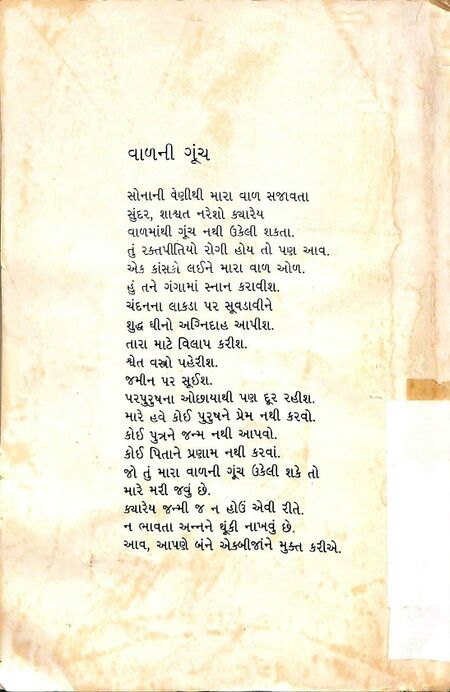 વાળની ગૂંચ
સોનાની વેણીથી મારા વાળ સજાવતા
સુંદર, શાશ્વત નરેશો ક્યારેય
વાળમાંથી ગૂંચ નથી ઉકેલી શકતા.
તું રક્તપીતિયો રોગી હોય તો પણ આવ.
એક કાંસકો લઈને મારા વાળ ઓળ.
હું તને ગંગામાં સ્નાન કરાવીશ.
ચંદનના લાકડા પર સૂવડાવીને
શુદ્ધ ઘીનો અગ્નિદાહ આપીશ.
તારા માટે વિલાપ કરીશ.
શ્વેત વસ્ત્રો પહેરીશ.
જમીન પર સૂઈશ.
પરપુરુષના ઓછાયાથી પણ દૂર રહીશ.
મારે હવે કોઈ પુરુષને પ્રેમ નથી કરવો.
કોઈ પુત્રને જન્મ નથી આપવો.
કોઈ પિતાને પ્રણામ નથી કરવાં.
જો તું મારા વાળની ગૂંચ ઉકેલી શકે તો
મારે મરી જવું છે.
ક્યારેય જન્મી જ ન હોઉં એવી રીતે.
ન ભાવતા અન્નને થૂંકી નાખવું છે.
આવ, આપણે બંને એકબીજાંને મુક્ત કરીએ.